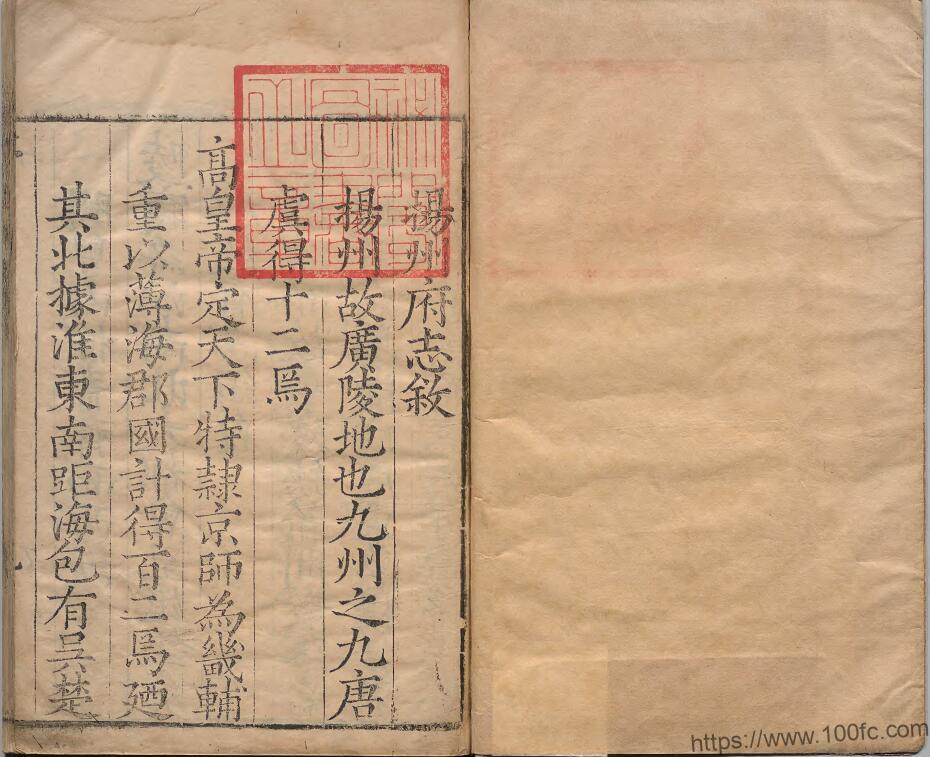 揚州府志敘
揚州故廣陵地也九州之九唐
虞得十二焉
高皇帝定天下特隷京師為畿輔
重以薄海郡國計得百二焉廼
其北據淮東南距海包有吳楚
https://www.100fc.com